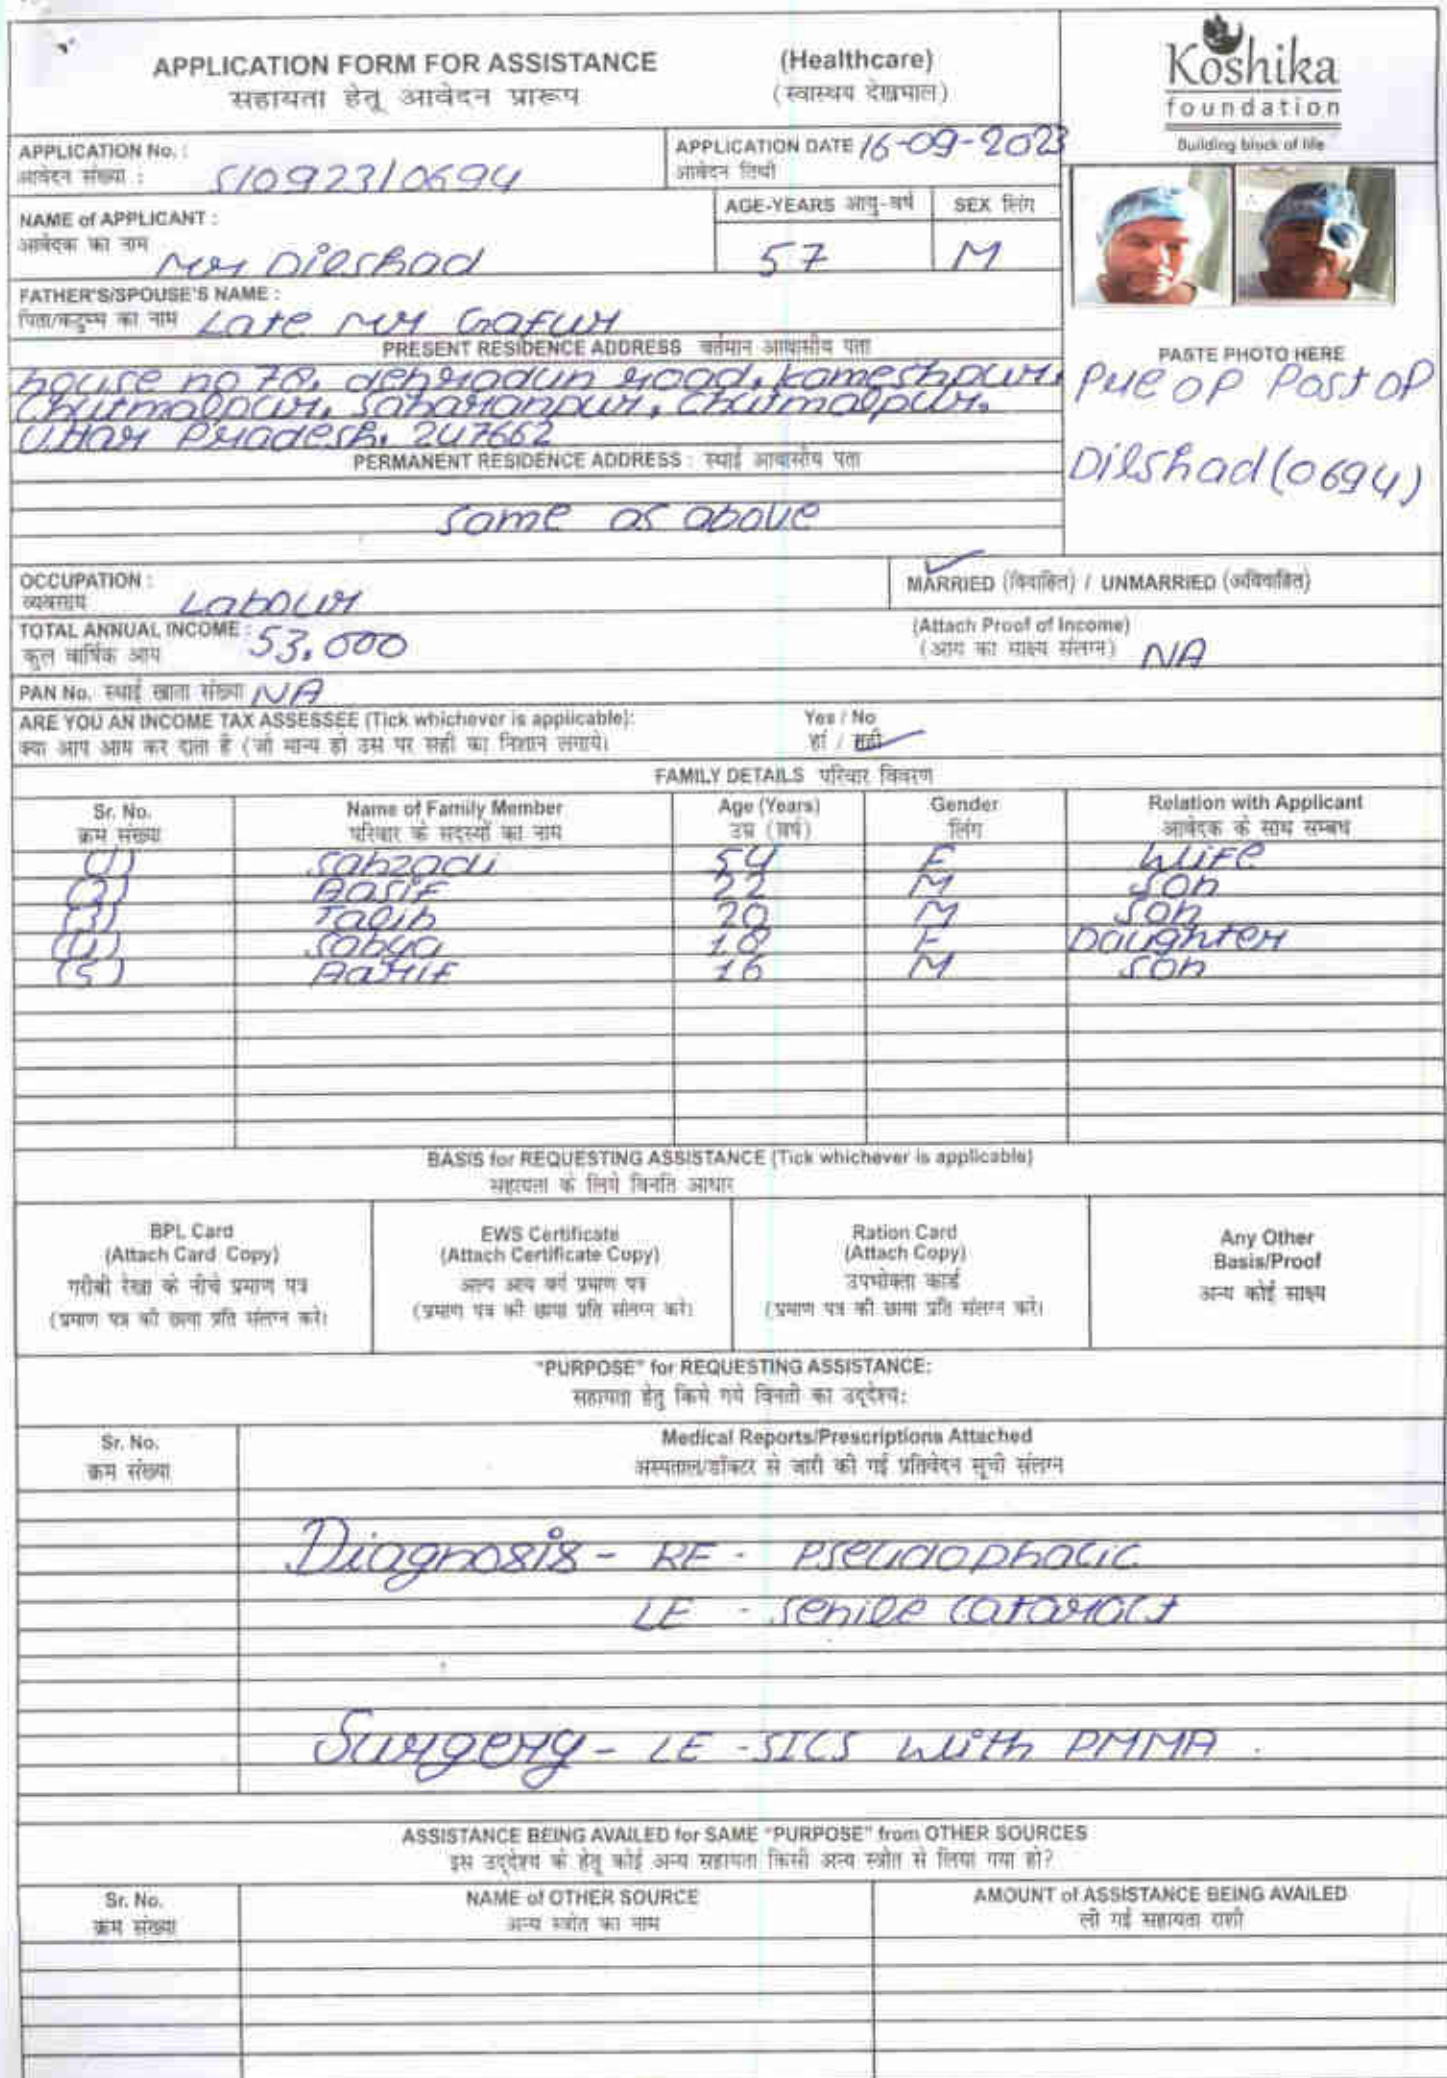 APPLICATION FORM FOR ASSISTANCE (Healthcare)
सहायता हेतू आवेदन प्रारूप (स्वास्थय देखभाल)
Koshika
foundation
Building block of life
APPLICATION No. :
आवेदन संख्या : S/0923/0694
APPLICATION DATE 16-09-2023
आवेदन तिथी
NAME of APPLICANT :
आवेदक का नाम Mr Dilshad
AGE-YEARS आयु-वर्ष SEX लिंग
57 M
FATHER'S/SPOUSE'S NAME :
पिता/कटुम्ब का नाम Late Mr Gafur
PRESENT RESIDENCE ADDRESS वर्तमान आवासीय पता
house no 78, dehradun road, kameshpur,
Chutmalpur, Saharanpur, Chutmalpur,
Uttar Pradesh, 247662
PERMANENT RESIDENCE ADDRESS : स्थाई आवासीय पता
same as above
PASTE PHOTO HERE
Pre op Post op
Dilshad (0694)
OCCUPATION :
व्यवसाय Labour
MARRIED (विवाहित) / UNMARRIED (अविवाहित)
TOTAL ANNUAL INCOME : 53,000
कुल वार्षिक आय
(Attach Proof of Income)
(आय का साक्ष्य संलग्न) NA
PAN No. स्थाई खाता संख्या NA
ARE YOU AN INCOME TAX ASSESSEE (Tick whichever is applicable): Yes / No
क्या आप आय कर दाता है (जो मान्य हो उस पर सही का निशान लगाये। हां / नही
FAMILY DETAILS परिवार विवरण
Sr. No. Name of Family Member Age (Years) Gender Relation with Applicant
क्रम संख्या परिवार के सदस्यों का नाम उम्र (वर्ष) लिंग आवेदक के साथ सम्बध
(1) Sabzadi 54 F Wife
(2) Aasif 22 M Son
(3) Talib 20 M Son
(4) Sabya 18 F Daughter
(5) Aarif 16 M Son
BASIS for REQUESTING ASSISTANCE (Tick whichever is applicable)
सहायता के लिये विनति आधार
BPL Card
(Attach Card Copy)
गरीबी रेखा के नीचे प्रमाण पत्र
(प्रमाण पत्र की छाया प्रति संलग्न करे।
EWS Certificate
(Attach Certificate Copy)
अल्प आय वर्ग प्रमाण पत्र
(प्रमाण पत्र की छाया प्रति संलग्न करे।
Ration Card
(Attach Copy)
उपभोक्ता कार्ड
(प्रमाण पत्र की छाया प्रति संलग्न करे।
Any Other
Basis/Proof
अन्य कोई साक्ष्य
"PURPOSE" for REQUESTING ASSISTANCE:
सहायता हेतु किये गये विनती का उद्देश्य:
Sr. No. Medical Reports/Prescriptions Attached
क्रम संख्या अस्पताल/डॉक्टर से जारी की गई प्रतिवेदन सूची संलग्न
Diagnosis - RE - Pseudophakic
LE - Senile cataract
Surgery - LE - SICS with PMMA.
ASSISTANCE BEING AVAILED for SAME "PURPOSE" from OTHER SOURCES
इस उद्देश्य के हेतू कोई अन्य सहायता किसी अन्य स्त्रोत से लिया गया हो?
Sr. No. NAME of OTHER SOURCE AMOUNT of ASSISTANCE BEING AVAILED
क्रम संख्या अन्य स्त्रोत का नाम ली गई सहायता राशी